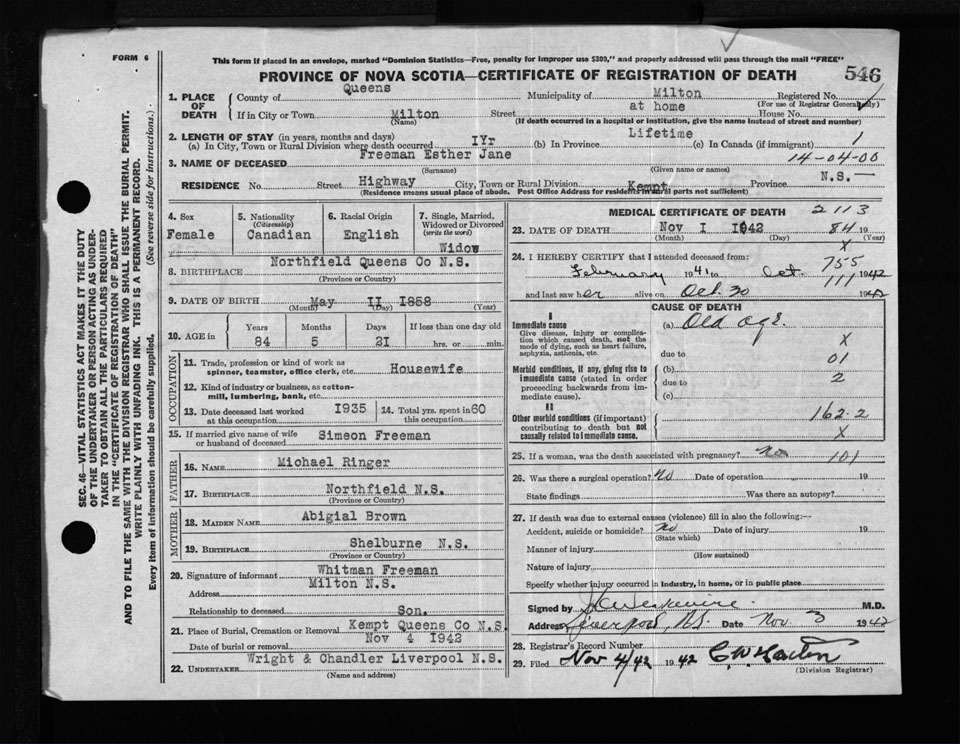 FORM 6
This form if placed in an envelope, marked "Dominion Statistics—Free, penalty for improper use $300," and properly addressed will pass through the mail "FREE"
PROVINCE OF NOVA SCOTIA—CERTIFICATE OF REGISTRATION OF DEATH
546
1. PLACE OF DEATH
County of Queens Municipality of Milton Registered No.
(For use of Registrar General only)
If in City or Town Milton Street at home House No.
(Name) (If death occurred in a hospital or institution, give the name instead of street and number)
2. LENGTH OF STAY (in years, months and days)
(a) In City, Town or Rural Division where death occurred IYr (b) In Province Lifetime (c) In Canada (if immigrant) 1
3. NAME OF DECEASED Freeman Esther Jane 14-04-00
(Surname) (Given name or names)
RESIDENCE No. Street Highway City, Town or Rural Division Kempt Province N.S.—
(Residence means usual place of abode. Post Office Address for residents in rural parts not sufficient)
4. Sex
Female
5. Nationality
(Citizenship)
Canadian
6. Racial Origin
English
7. Single, Married, Widowed or Divorced
(write the word)
Widow
8. BIRTHPLACE Northfield Queens Co N.S.
(Province or Country)
9. DATE OF BIRTH May II I858
(Month) (Day) (Year)
10. AGE in
Years Months Days If less than one day old
84 5 2I hrs. or min.
OCCUPATION
11. Trade, profession or kind of work as spinner, teamster, office clerk, etc. Housewife
12. Kind of industry or business, as cotton-mill, lumbering, bank, etc.
13. Date deceased last worked at this occupation I935
14. Total yrs. spent in this occupation 60
15. If married give name of wife or husband of deceased Simeon Freeman
FATHER
16. NAME Michael Ringer
17. BIRTHPLACE Northfield N.S.
(Province or Country)
MOTHER
18. MAIDEN NAME Abigial Brown
19. BIRTHPLACE Shelburne N.S.
(Province or Country)
20. Signature of informant Whitman Freeman
Address Milton N.S.
Relationship to deceased Son.
21. Place of Burial, Cremation or Removal Kempt Queens Co N.S.
Date of burial or removal Nov 4 I942
22. UNDERTAKER Wright & Chandler Liverpool N.S.
(Name and address)
MEDICAL CERTIFICATE OF DEATH 2113
23. DATE OF DEATH Nov I I942 84
(Month) (Day) (Year)
X
24. I HEREBY CERTIFY that I attended deceased from:
755
February 1941 to Oct. 1942
111
and last saw her alive on Oct. 30 1942
CAUSE OF DEATH
I
Immediate cause
Give disease, injury or complication which caused death, not the mode of dying, such as heart failure, asphyxia, asthenia, etc.
(a) Old age.
X
due to
01
Morbid conditions, if any, giving rise to immediate cause (stated in order proceeding backwards from immediate cause).
(b)
2
due to
(c)
II
Other morbid conditions (if important) contributing to death but not causally related to immediate cause.
162.2
X
25. If a woman, was the death associated with pregnancy? No 101
26. Was there a surgical operation? No Date of operation 19
State findings Was there an autopsy?
27. If death was due to external causes (violence) fill in also the following:—
Accident, suicide or homicide? No Date of injury 19
(State which)
Manner of injury
(How sustained)
Nature of injury
Specify whether injury occurred in industry, in home, or in public place
Signed by M.D.
Address Liverpool, N.S. Date Nov. 3 1942
28. Registrar's Record Number
29. Filed Nov 4/42 1942
(Division Registrar)
SEC. 46—VITAL STATISTICS ACT MAKES IT THE DUTY
OF THE UNDERTAKER OR PERSON ACTING AS UNDER-
TAKER TO OBTAIN ALL THE PARTICULARS REQUIRED
IN THE "CERTIFICATE OF REGISTRATION OF DEATH"
AND TO FILE THE SAME WITH THE DIVISION REGISTRAR WHO SHALL ISSUE THE BURIAL PERMIT.
WRITE PLAINLY WITH UNFADING INK. THIS IS A PERMANENT RECORD.
Every item of information should be carefully supplied. (See reverse side for instructions.)